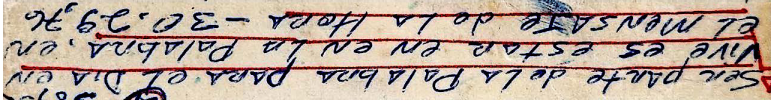 Ser parte de La Palabra para el Dia en
Vive es estar en La Palabra, en
el mensaje de La Hora - 30.29,76